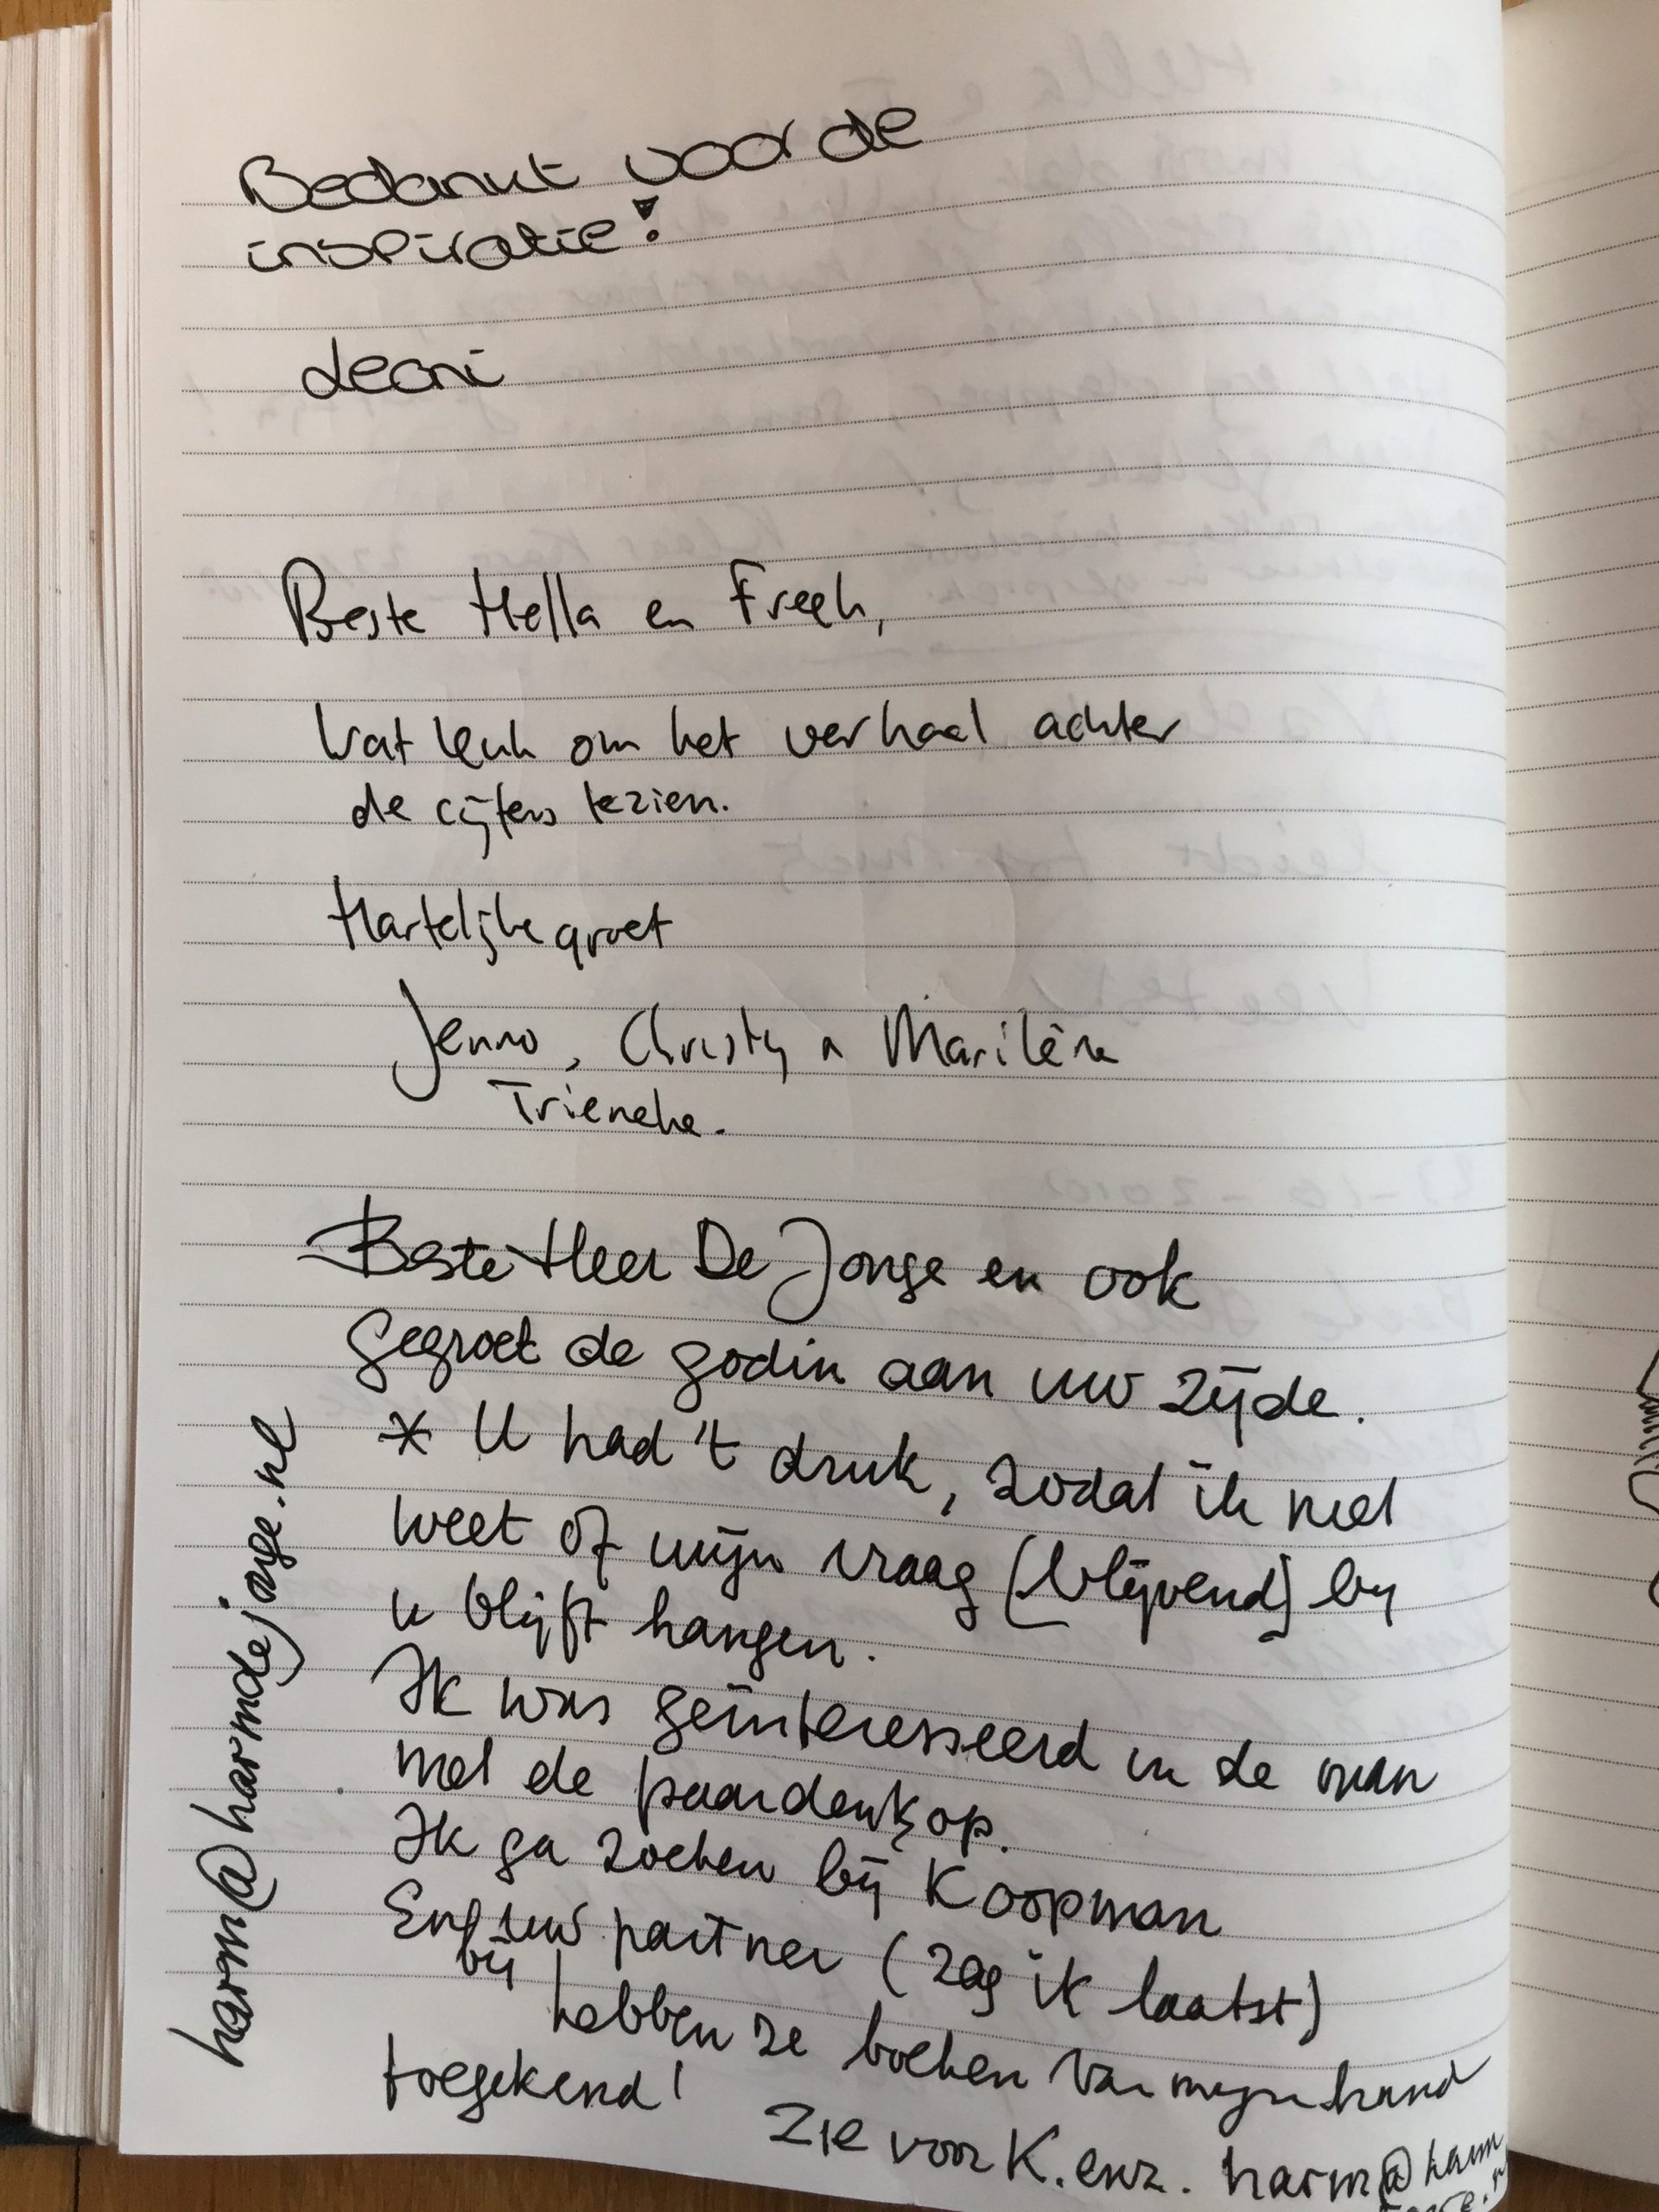 Bedankt voor de
inspiratie!
Leoni
Beste Hella en Freek,
Wat leuk om het verhaal achter
de cijfers te zien.
Hartelijke groet
Jenno, Christy n Marilène
Trieneke.
Beste Heer De Jonge en ook
gegroet de godin aan uw zijde.
* U had 't druk, zodat ik niet
weet of mijn vraag (blijvend) by
u blijft hangen.
Ik was geïnteresseerd in de man
met de paardenkop.
Ik ga zoeken bij Koopman
En uw partner (zag ik laatst)
bij hebben ze boeken van mijn hand
toegekend!
Zie voor K. enz. harm@harm
harm@harmdejonge.nl